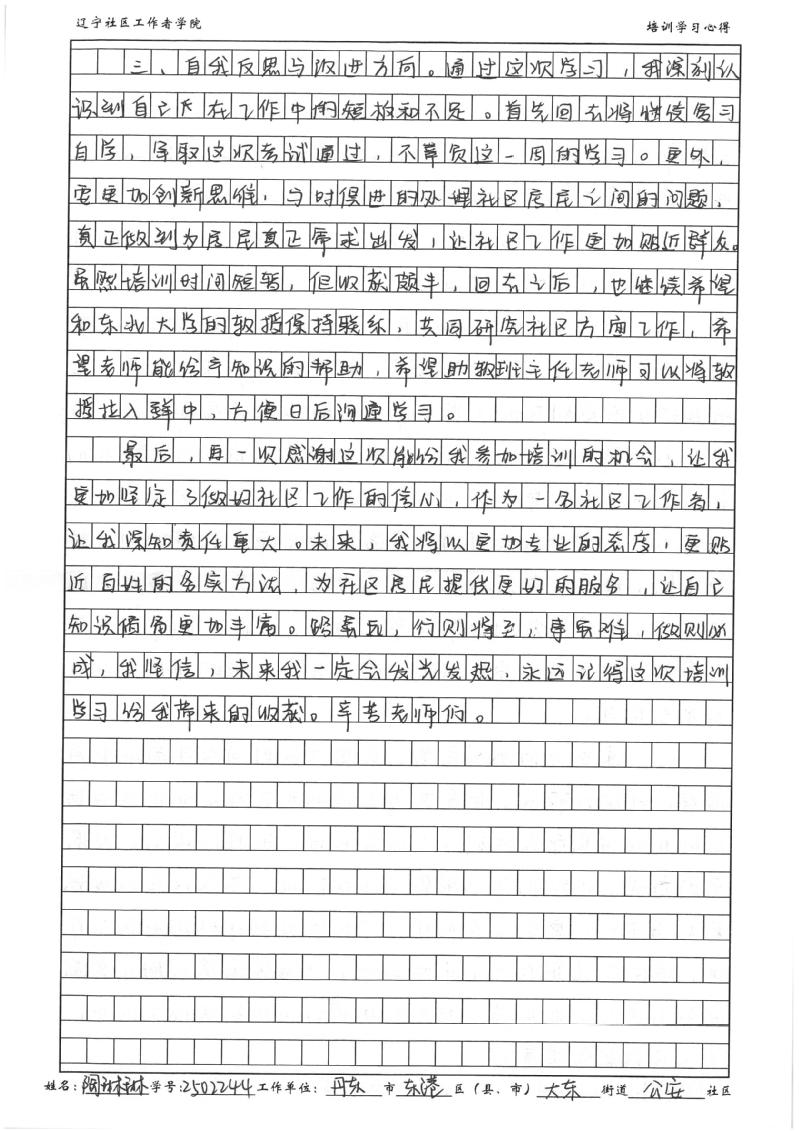 辽宁社区工作者学院
培训学习心得
三、自我反思与改进方向。通过这次学习，我深刻认
识到自己尺在工作中的短板和不足。首先回去将继续学习
自学，争取这次考试通过，不辜负这一周的学习。更外，
要更加创新思维，与时俱进的处理社区居民之间的问题，
真正做到为居民真正需求出发，让社区工作更加贴近群众。
虽然培训时间短暂，但收获颇丰，回去之后，也继续希望
和东北大学的教授保持联系，共同研究社区方面工作，希
望老师能给予知识的帮助，希望助教班主任老师可以将教
授拉入群中，方便日后沟通学习。
最后，再一次感谢这次能给我参加培训的机会，让我
更加坚定了做好社区工作的信心，作为一名社区工作者，
让我深知责任重大。未来，我将以更加专业的态度，更贴
近百姓的务实方法，为社区居民提供更好的服务，让自己
知识储备更加丰富。路虽远，行则将至，事虽难，做则必
成，我坚信，未来我一定会发光发热，永远记得这次培训
学习给我带来的收获。辛苦老师们。
姓名：陶琳琳 学号：2502244 工作单位：丹东 市 东港 区（县、市） 大东 街道 公安 社区